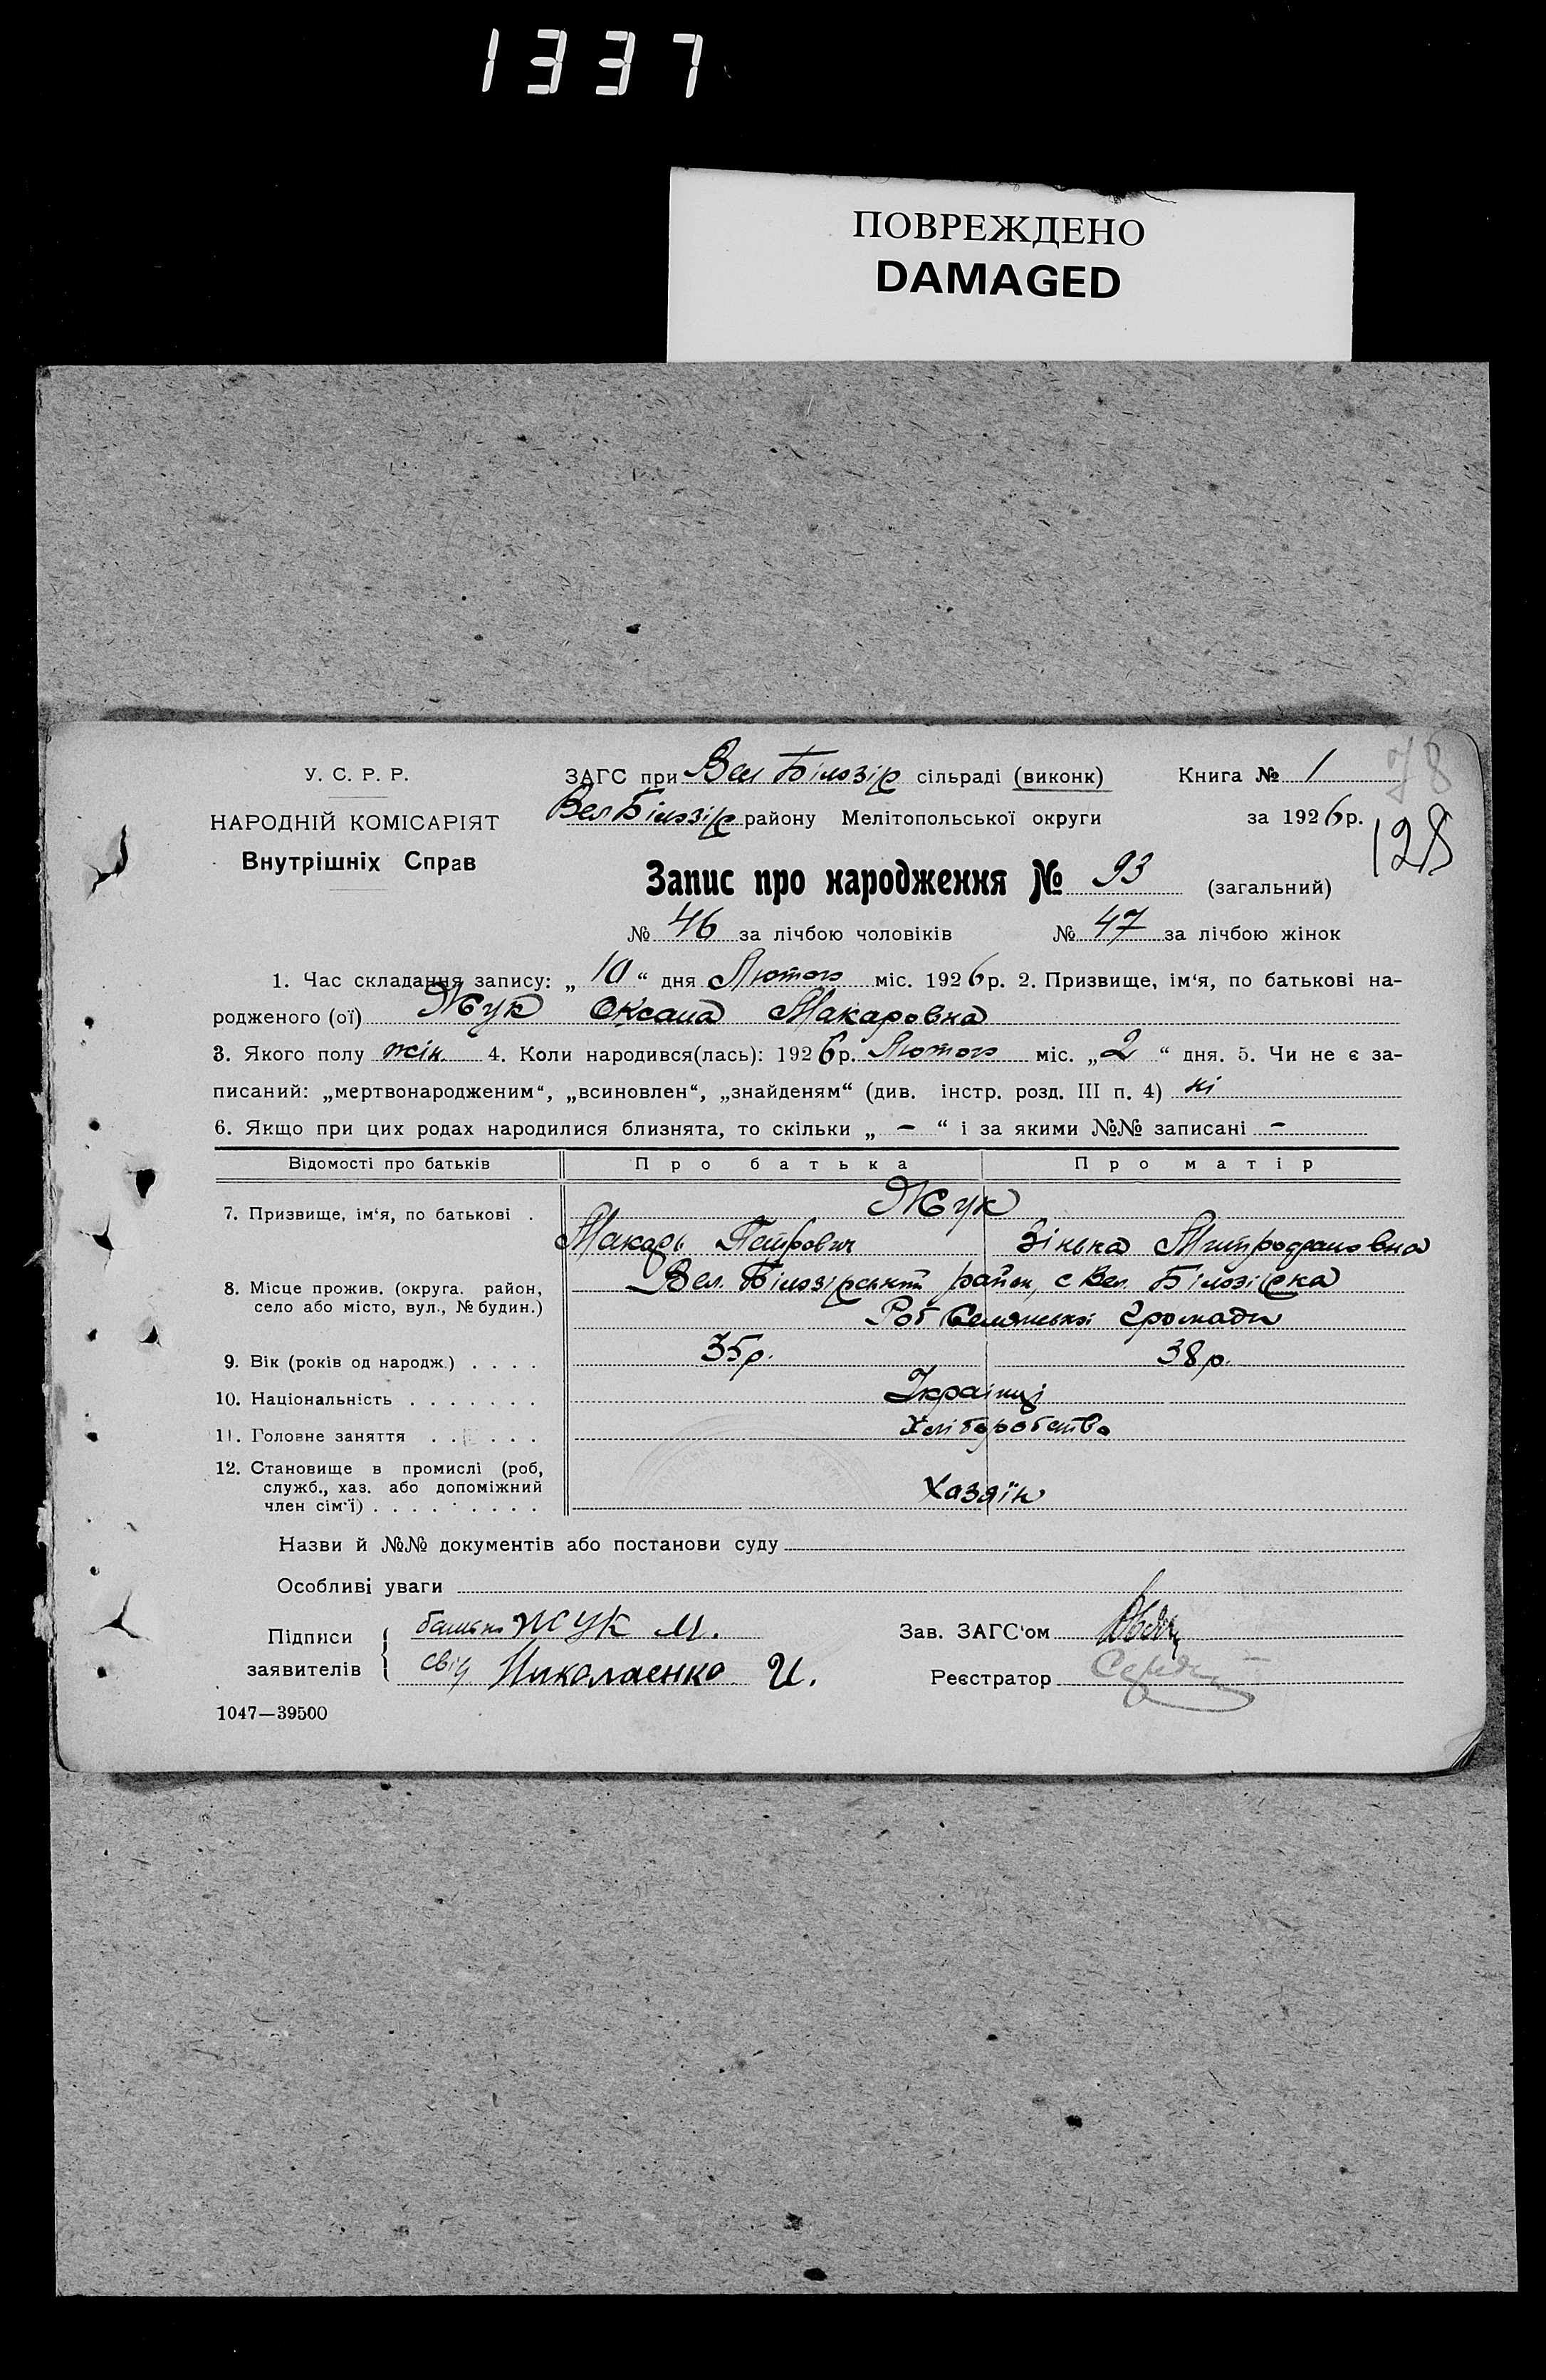 1337
ПОВРЕЖДЕНО
DAMAGED
78
128
У. С. Р. Р.
НАРОДНІЙ КОМІСАРІЯТ
Внутрішніх Справ
ЗАГС при Вел Білозір сільраді (виконк) Книга № 1
Вел Білозір району Мелітопольської округи за 1926 р.
Запис про народження № 93 (загальний)
№ 46 за лічбою чоловіків № 47 за лічбою жінок
1. Час складання запису: „ 10 “ дня Лютого міс. 1926 р. 2. Призвище, ім‘я, по батькові на-
родженого (ої) Жук Оксана Макаровна
3. Якого полу жін. 4. Коли народився(лась): 1926 р. Лютого міс. „ 2 “ дня. 5. Чи не є за-
писаний: „мертвонародженим“, „всиновлен“, „знайденям“ (див. інстр. розд. III п. 4) ні
6. Якщо при цих родах народилися близнята, то скільки „ – “ і за якими №№ записані –
Відомості про батьків Про батька Про матір
7. Призвище, ім‘я, по батькові . Жук
Макарь Петрович Зінька Митрофановна
8. Місце прожив. (округа. район, село або місто, вул., № будин.) Вел. Білозірський район, с Вел. Білозірка
Роб Селянської Громади
9. Вік (років од народж.) . . . . 35 р. 38 р.
10. Національність . . . . . . . Українці
11. Головне заняття . . . . . . Хліборобство
12. Становище в промислі (роб,
служб., хаз. або допоміжний
член сім‘ї) . . . . . . . . . Хазяїн
Назви й №№ документів або постанови суду
Особливі уваги
Підписи заявителів батько ЖУК М.
свід Николаенко И.
Зав. ЗАГС‘ом
Реєстратор
1047—39500